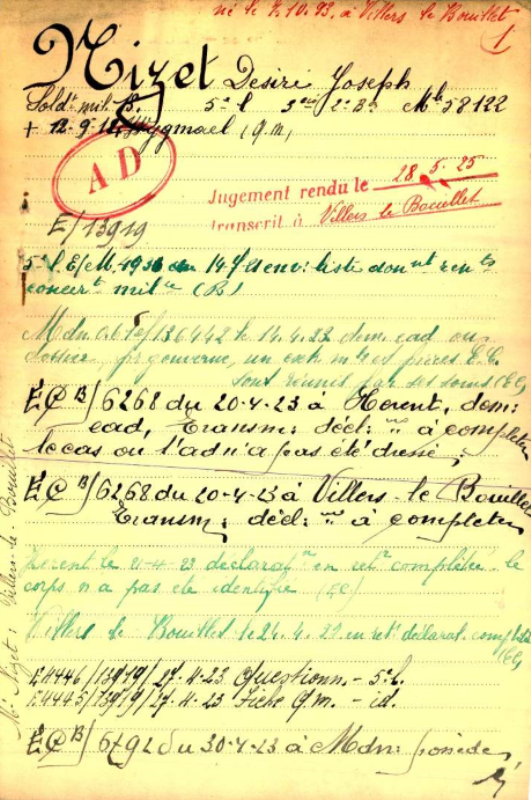 né le 7.10.93, à Villers le Bouillet
1
Nizet Désiré Joseph
Soldt mil. B. 5e l 3e 2e Bn Mle 58122
+ 12-9-14 Wygmael (q.m)
A D
Jugement rendu le 28-5-25
transcrit à Villers le Bouillet
E/13919
5e l. E/M. 4936 du 14-7- env: liste donnt rents
concert milre (B)
Mdn 136442 le 14.4.23 dem. cad ou
pr gouverne, un extr. pièces E.C.
sont réunis par ses soins (EC)
ÉC B/6268 du 20-4-23 à Herent, dem:
cad, transm: décl: à completer
le cas ou l'ad n'a pas été dressé;
ÉC B/6268 du 20-4-23 à Villers-le Bouillet
transm: décl: à completer
Herent le 21-4-23 déclaration en ret. complétée. le
corps n'a pas été identifié (EC)
Villers le Bouillet le 24.4.23 en ret. déclarat. complétée
(EC)
E.4446/13919/27-4-23 Questionn. - 5e l.
E.4445/13919/27-4-23 Fiche q/m. - id.
ÉC B/6792 du 30-4-23 à Mdn: possède
Mr Nizet: Villers-le-Bouillet